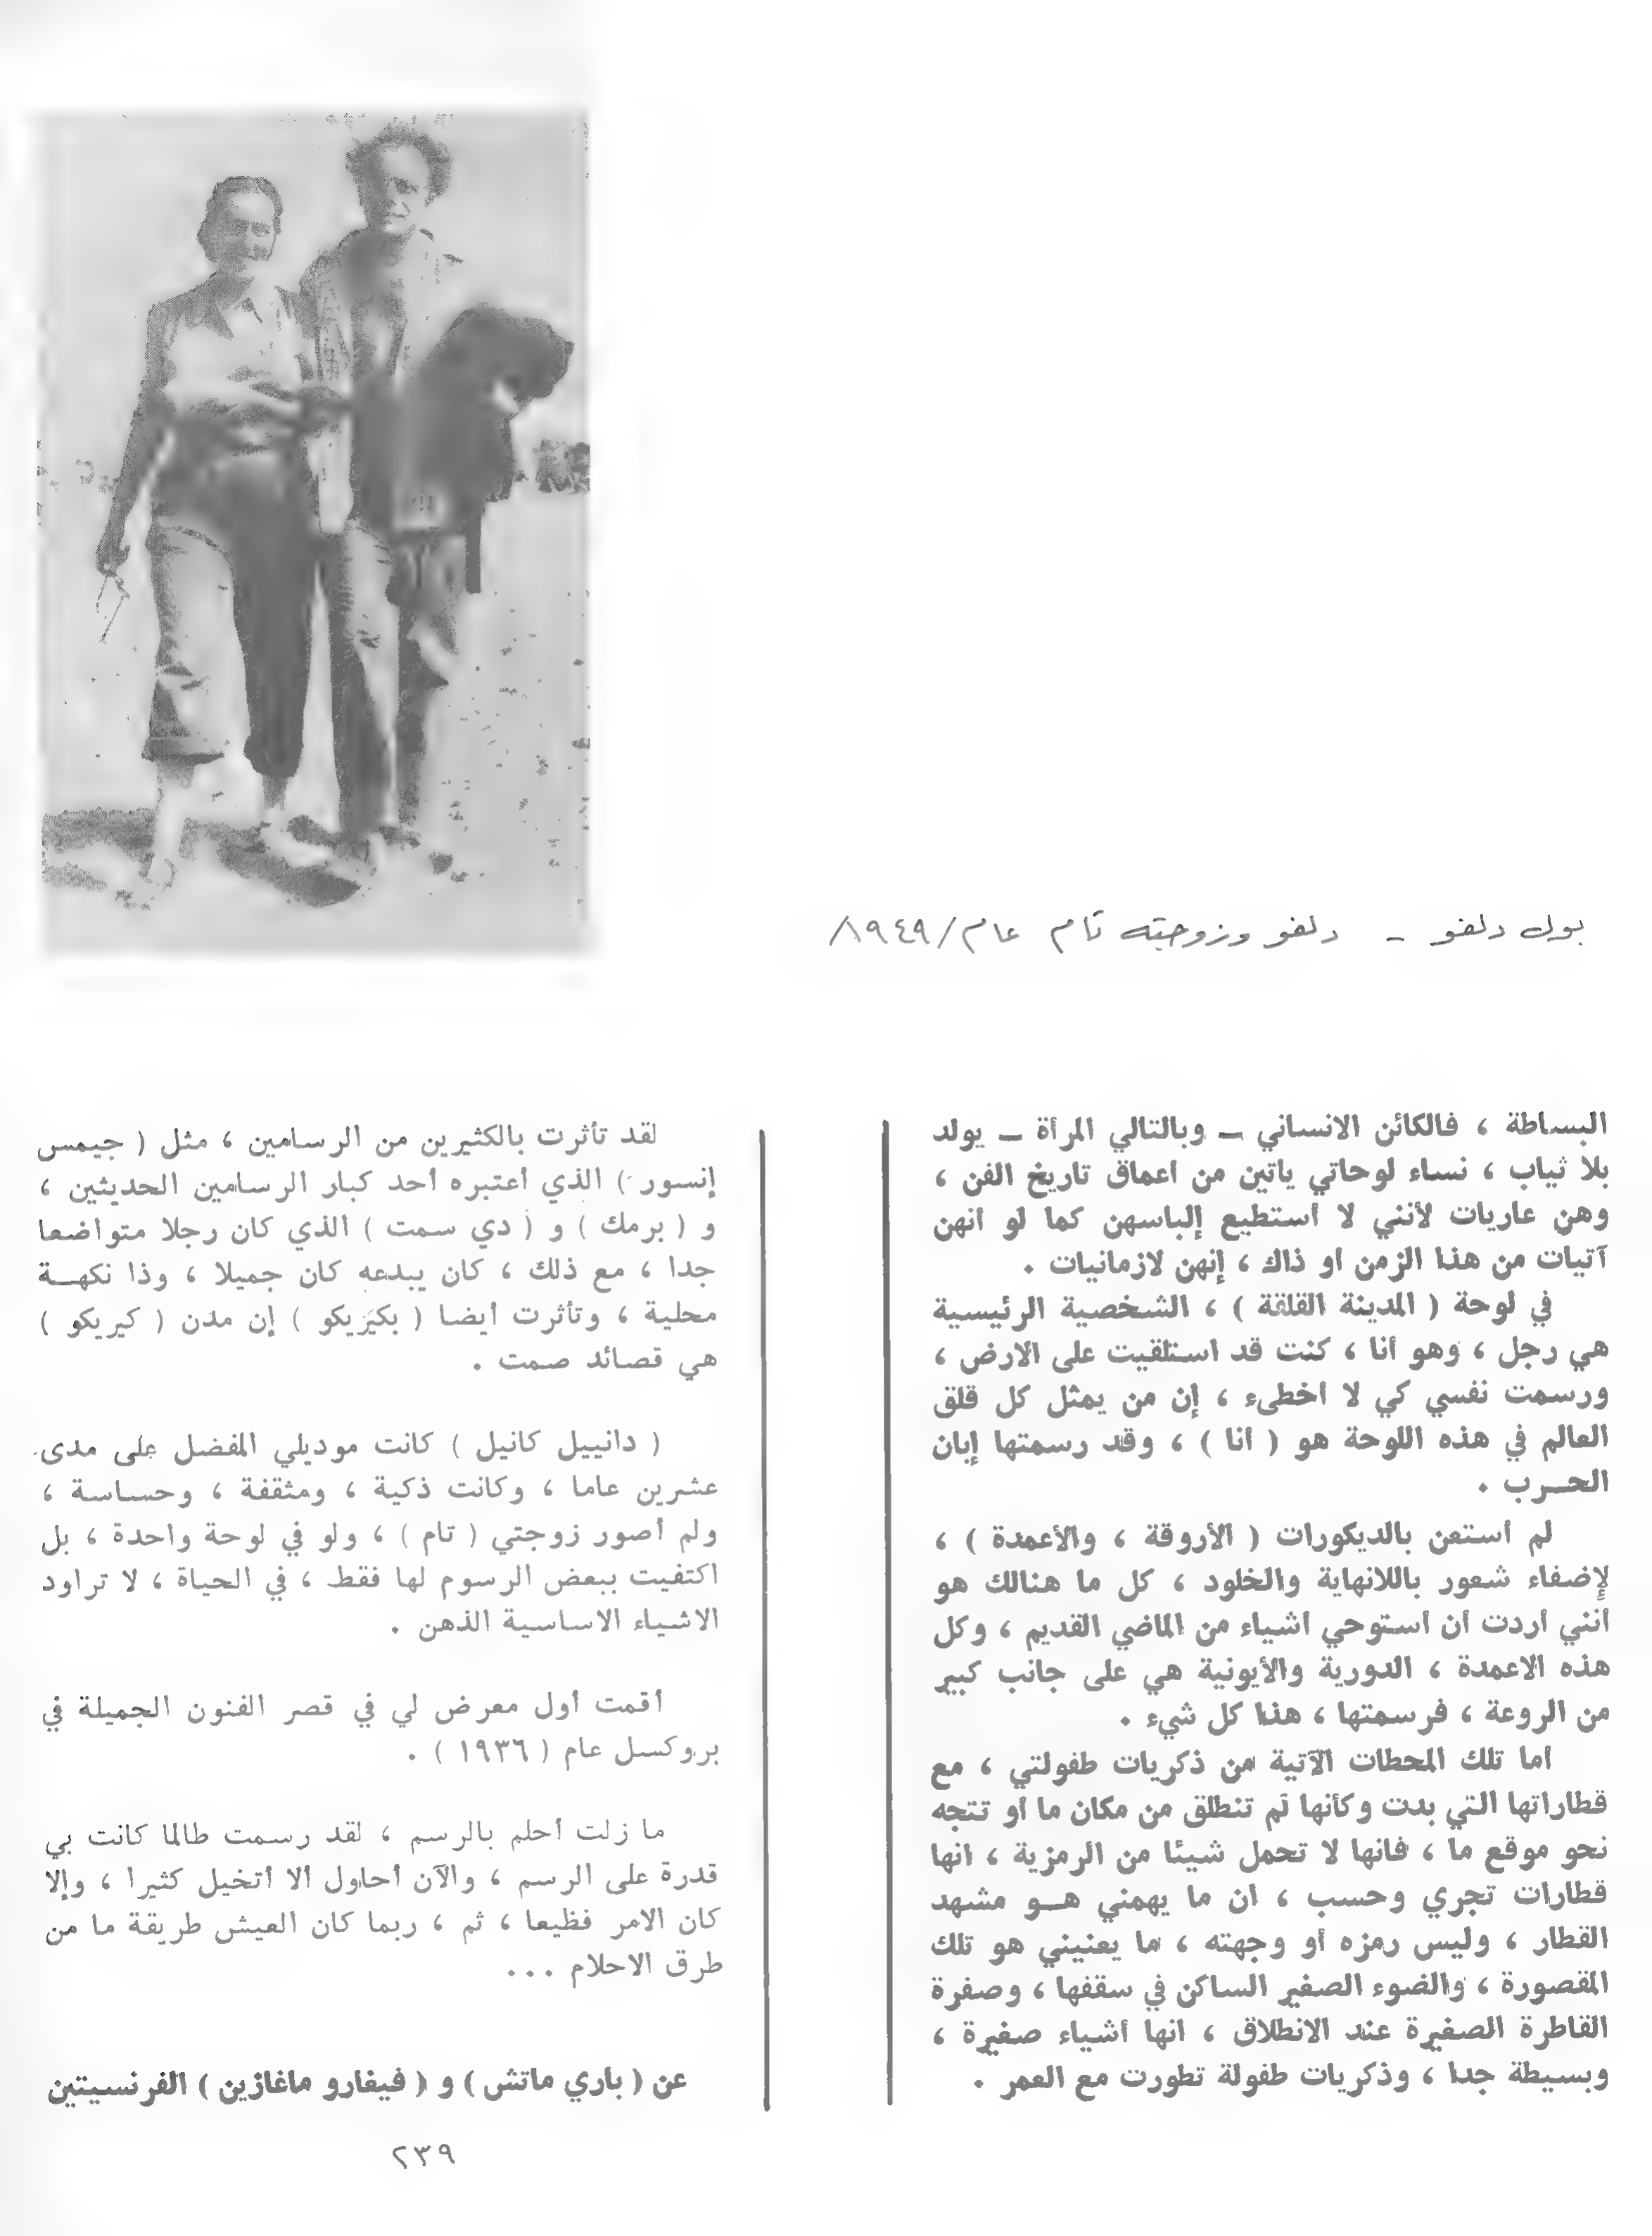 بول دلفو - دلفو وزوجته تام عام /١٩٤٩/
البساطة ، فالكائن الانساني – وبالتالي المرأة – يولد
بلا ثياب ، نساء لوحاتي ياتين من أعماق تاريخ الفن ،
وهن عاريات لأنني لا أستطيع إلباسهن كما لو انهن
آتيات من هذا الزمن او ذاك ، إنهن لازمانيات .
في لوحة ( المدينة القلقة ) ، الشخصية الرئيسية
هي رجل ، وهو أنا ، كنت قد استلقيت على الارض ،
ورسمت نفسي كي لا أخطىء ، إن من يمثل كل قلق
العالم في هذه اللوحة هو ( أنا ) ، وقد رسمتها إبان
الحرب .
لم أستعن بالديكورات ( الأروقة ، والأعمدة ) ،
لإضفاء شعور باللانهاية والخلود ، كل ما هنالك هو
أنني اردت ان استوحي اشياء من الماضي القديم ، وكل
هذه الاعمدة ، الدورية والأيونية هي على جانب كبير
من الروعة ، فرسمتها ، هذا كل شيء .
اما تلك المحطات الآتية من ذكريات طفولتي ، مع
قطاراتها التي بدت وكأنها لم تنطلق من مكان ما أو تتجه
نحو موقع ما ، فانها لا تحمل شيئا من الرمزية ، انها
قطارات تجري وحسب ، ان ما يهمني هــو مشهد
القطار ، وليس رمزه أو وجهته ، ما يعنيني هو تلك
المقصورة ، والضوء الصغير الساكن في سقفها ، وصفرة
القاطرة الصغيرة عند الانطلاق ، انها أشياء صغيرة ،
وبسيطة جدا ، وذكريات طفولة تطورت مع العمر .
لقد تأثرت بالكثيرين من الرسامين ، مثل ( جيمس
إنسور ) الذي أعتبره أحد كبار الرسامين الحديثين ،
و ( برمك ) و ( دي سمت ) الذي كان رجلا متواضعا
جدا ، مع ذلك ، كان يبدعه كان جميلا ، وذا نكهــة
محلية ، وتأثرت أيضا ( بكيريكو ) إن مدن ( كيريكو )
هي قصائد صمت .
( دانييل كانيل ) كانت موديلي المفضل على مدى
عشرين عاما ، وكانت ذكية ، ومثقفة ، وحساسة ،
ولم أصور زوجتي ( تام ) ، ولو في لوحة واحدة ، بل
اكتفيت ببعض الرسوم لها فقط ، في الحياة ، لا تراود
الاشياء الاساسية الذهن .
أقمت أول معرض لي في قصر الفنون الجميلة في
بروكسل عام ( ١٩٣٦ ) .
ما زلت أحلم بالرسم ، لقد رسمت طالما كانت بي
قدرة على الرسم ، والآن أحاول ألا أتخيل كثيرا ، وإلا
كان الامر فظيعا ، ثم ، ربما كان العيش طريقة ما من
طرق الاحلام ...
عن ( باري ماتش ) و ( فيغارو ماغازين ) الفرنسيتين
٢٣٩